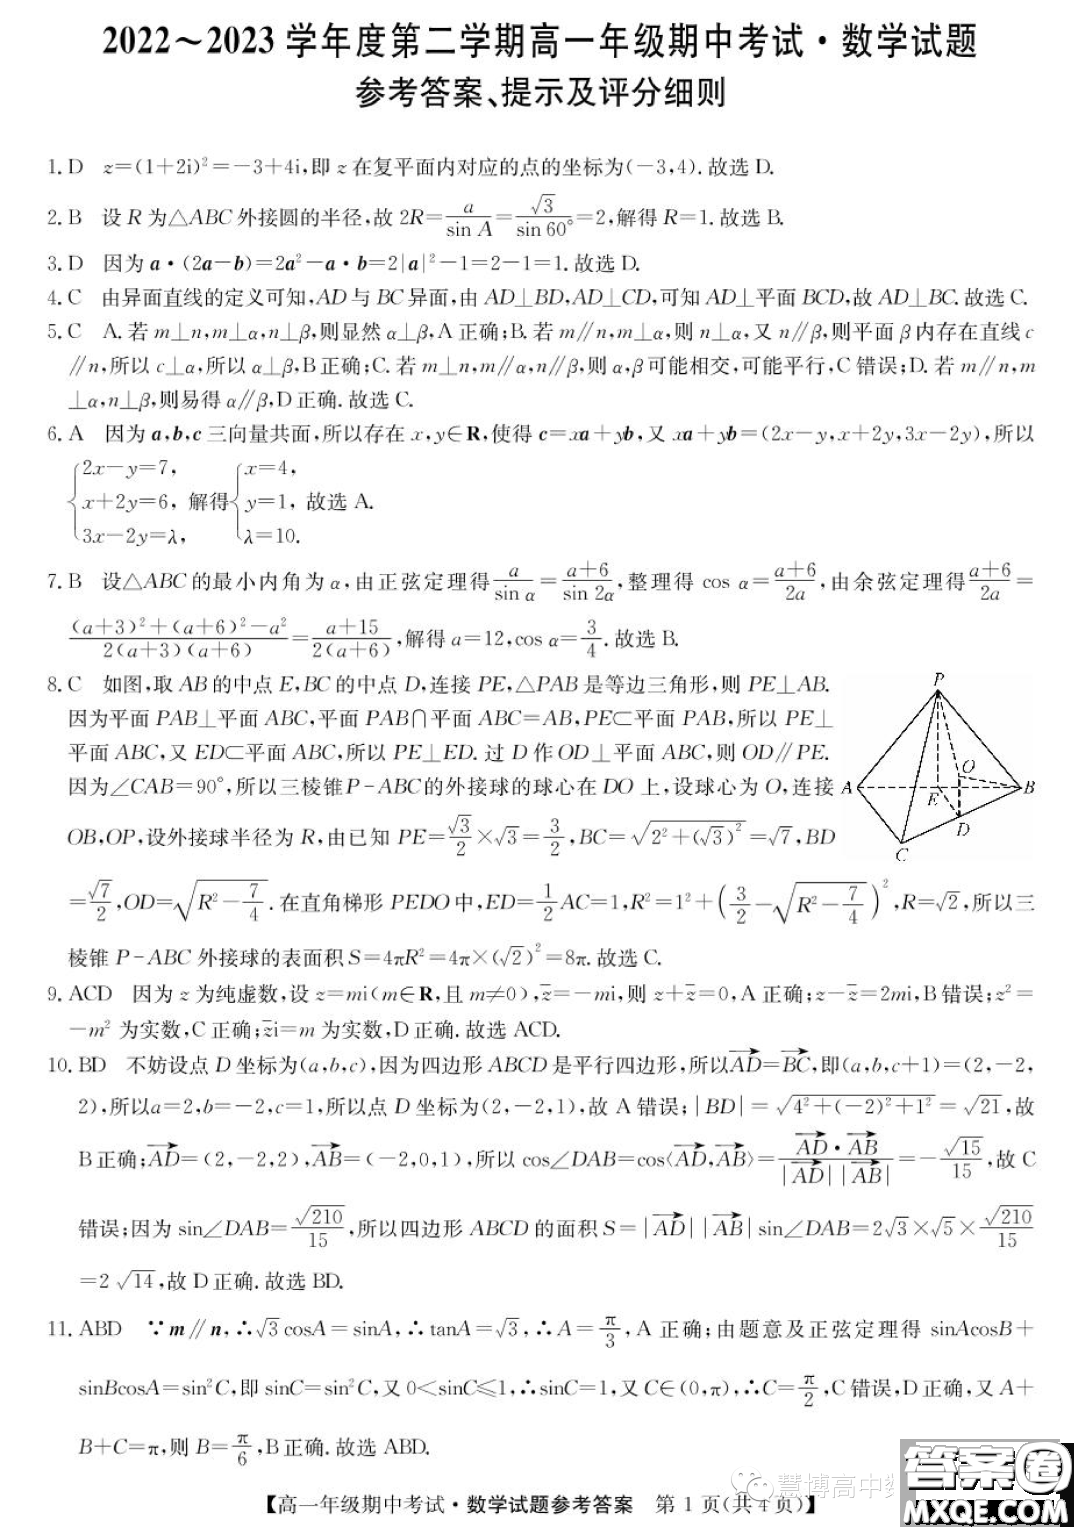 2022～2023 学年度第二学期高一年级期中考试·数学试题
参考答案、提示及评分细则
1. D　z=(1+2i)²=-3+4i,即 z 在复平面内对应的点的坐标为(-3,4). 故选 D.
2. B　设 R 为△ABC 外接圆的半径,故 2R=a/sin A=√3/sin 60°=2,解得 R=1. 故选 B.
3. D　因为 a·(2a-b)=2a²-a·b=2|a|²-1=2-1=1. 故选 D.
4. C　由异面直线的定义可知,AD 与 BC 异面,由 AD⊥BD,AD⊥CD,可知 AD⊥平面 BCD,故 AD⊥BC. 故选 C.
5. C　A. 若 m⊥n,m⊥α,n⊥β,则显然 α⊥β,A 正确;B. 若 m∥n,m⊥α,则 n⊥α,又 n∥β,则平面 β 内存在直线 c
∥n,所以 c⊥α,所以 α⊥β,B 正确;C. 若 m⊥n,m∥α,n∥β,则 α,β 可能相交,可能平行,C 错误;D. 若 m∥n,m
⊥α,n⊥β,则易得 α∥β,D 正确. 故选 C.
6. A　因为 a,b,c 三向量共面,所以存在 x,y∈R,使得 c=xa+yb,又 xa+yb=(2x-y,x+2y,3x-2y),所以
{2x-y=7, x+2y=6, 3x-2y=λ, 解得{x=4, y=1, λ=10. 故选 A.
7. B　设△ABC 的最小内角为 α,由正弦定理得 a/sin α=(a+6)/sin 2α,整理得 cos α=(a+6)/2a,由余弦定理得(a+6)/2a=
((a+3)²+(a+6)²-a²)/2(a+3)(a+6)=(a+15)/2(a+6),解得 a=12,cos α=3/4. 故选 B.
8. C　如图,取 AB 的中点 E,BC 的中点 D,连接 PE,△PAB 是等边三角形,则 PE⊥AB.
因为平面 PAB⊥平面 ABC,平面 PAB∩平面 ABC=AB,PE⊂平面 PAB,所以 PE⊥
平面 ABC,又 ED⊂平面 ABC,所以 PE⊥ED. 过 D 作 OD⊥平面 ABC,则 OD∥PE.
因为∠CAB=90°,所以三棱锥P-ABC的外接球的球心在 DO 上,设球心为 O,连接
OB,OP,设外接球半径为 R,由已知 PE=√3/2×√3=3/2,BC=√(2²+(√3)²)=√7,BD
=√7/2,OD=√(R²-7/4). 在直角梯形 PEDO 中,ED=1/2AC=1,R²=1²+(3/2-√(R²-7/4))²,R=√2,所以三
棱锥 P-ABC 外接球的表面积 S=4πR²=4π×(√2)²=8π. 故选 C.
P
A
B
C
D
E
O
9. ACD　因为 z 为纯虚数,设 z=mi(m∈R,且 m≠0),z̄=-mi,则 z+z̄=0,A 正确;z-z̄=2mi,B 错误;z²=
-m² 为实数,C 正确;z̄i=m 为实数,D 正确. 故选 ACD.
10. BD　不妨设点 D 坐标为(a,b,c),因为四边形 ABCD 是平行四边形,所以AD→=BC→,即(a,b,c+1)=(2,-2,
2),所以a=2,b=-2,c=1,所以点 D 坐标为(2,-2,1),故 A 错误;|BD|=√(4²+(-2)²+1²)=√21,故
B 正确;AD→=(2,-2,2),AB→=(-2,0,1),所以 cos∠DAB=cos⟨AD→,AB→⟩=(AD→·AB→)/(|AD→||AB→|)=-√15/15,故 C
错误;因为 sin∠DAB=√210/15,所以四边形 ABCD 的面积 S=|AD→||AB→|sin∠DAB=2√3×√5×√210/15
=2√14,故 D 正确. 故选 BD.
11. ABD　∵m∥n,∴√3cosA=sinA,∴tanA=√3,∴A=π/3,A 正确;由题意及正弦定理得 sinAcosB+
sinBcosA=sin²C,即 sinC=sin²C,又 0<sinC≤1,∴sinC=1,又 C∈(0,π),∴C=π/2,C 错误,D 正确,又 A+
B+C=π,则 B=π/6,B 正确. 故选 ABD.
慧博高中数
答案圈
MXQE.COM
【高一年级期中考试·数学试题参考答案　第 1 页(共 4 页)】